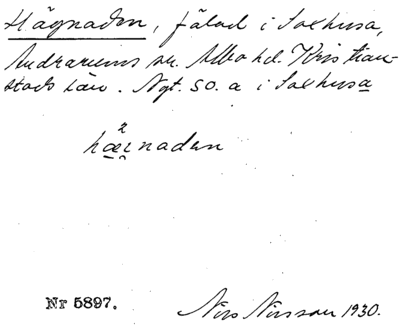 Hägnaden, fälad i Solhusa,
Andrarums sn. Albo hd. Kristian-
stads län. Ngt. SO. a i Solhusa
2
hæi̯naden
Nr 5897. Nils Nilsson 1930.